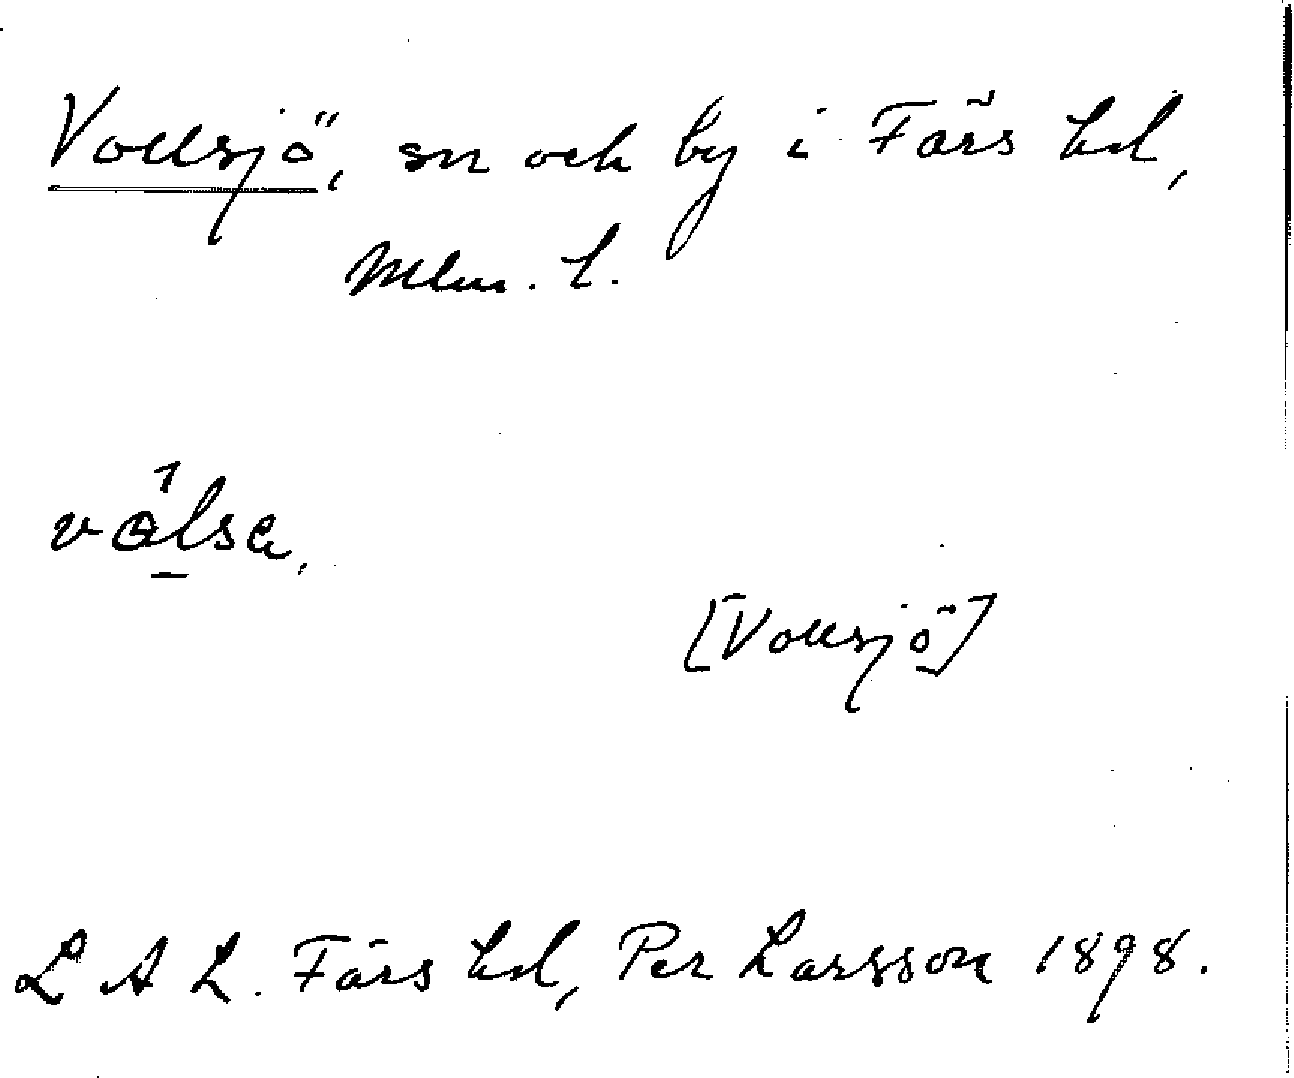 Vollsjö, sn och by i Färs hd,
Mlm. l.
[Vollsjö]
L A L. Färs hd, Per Larsson 1898.